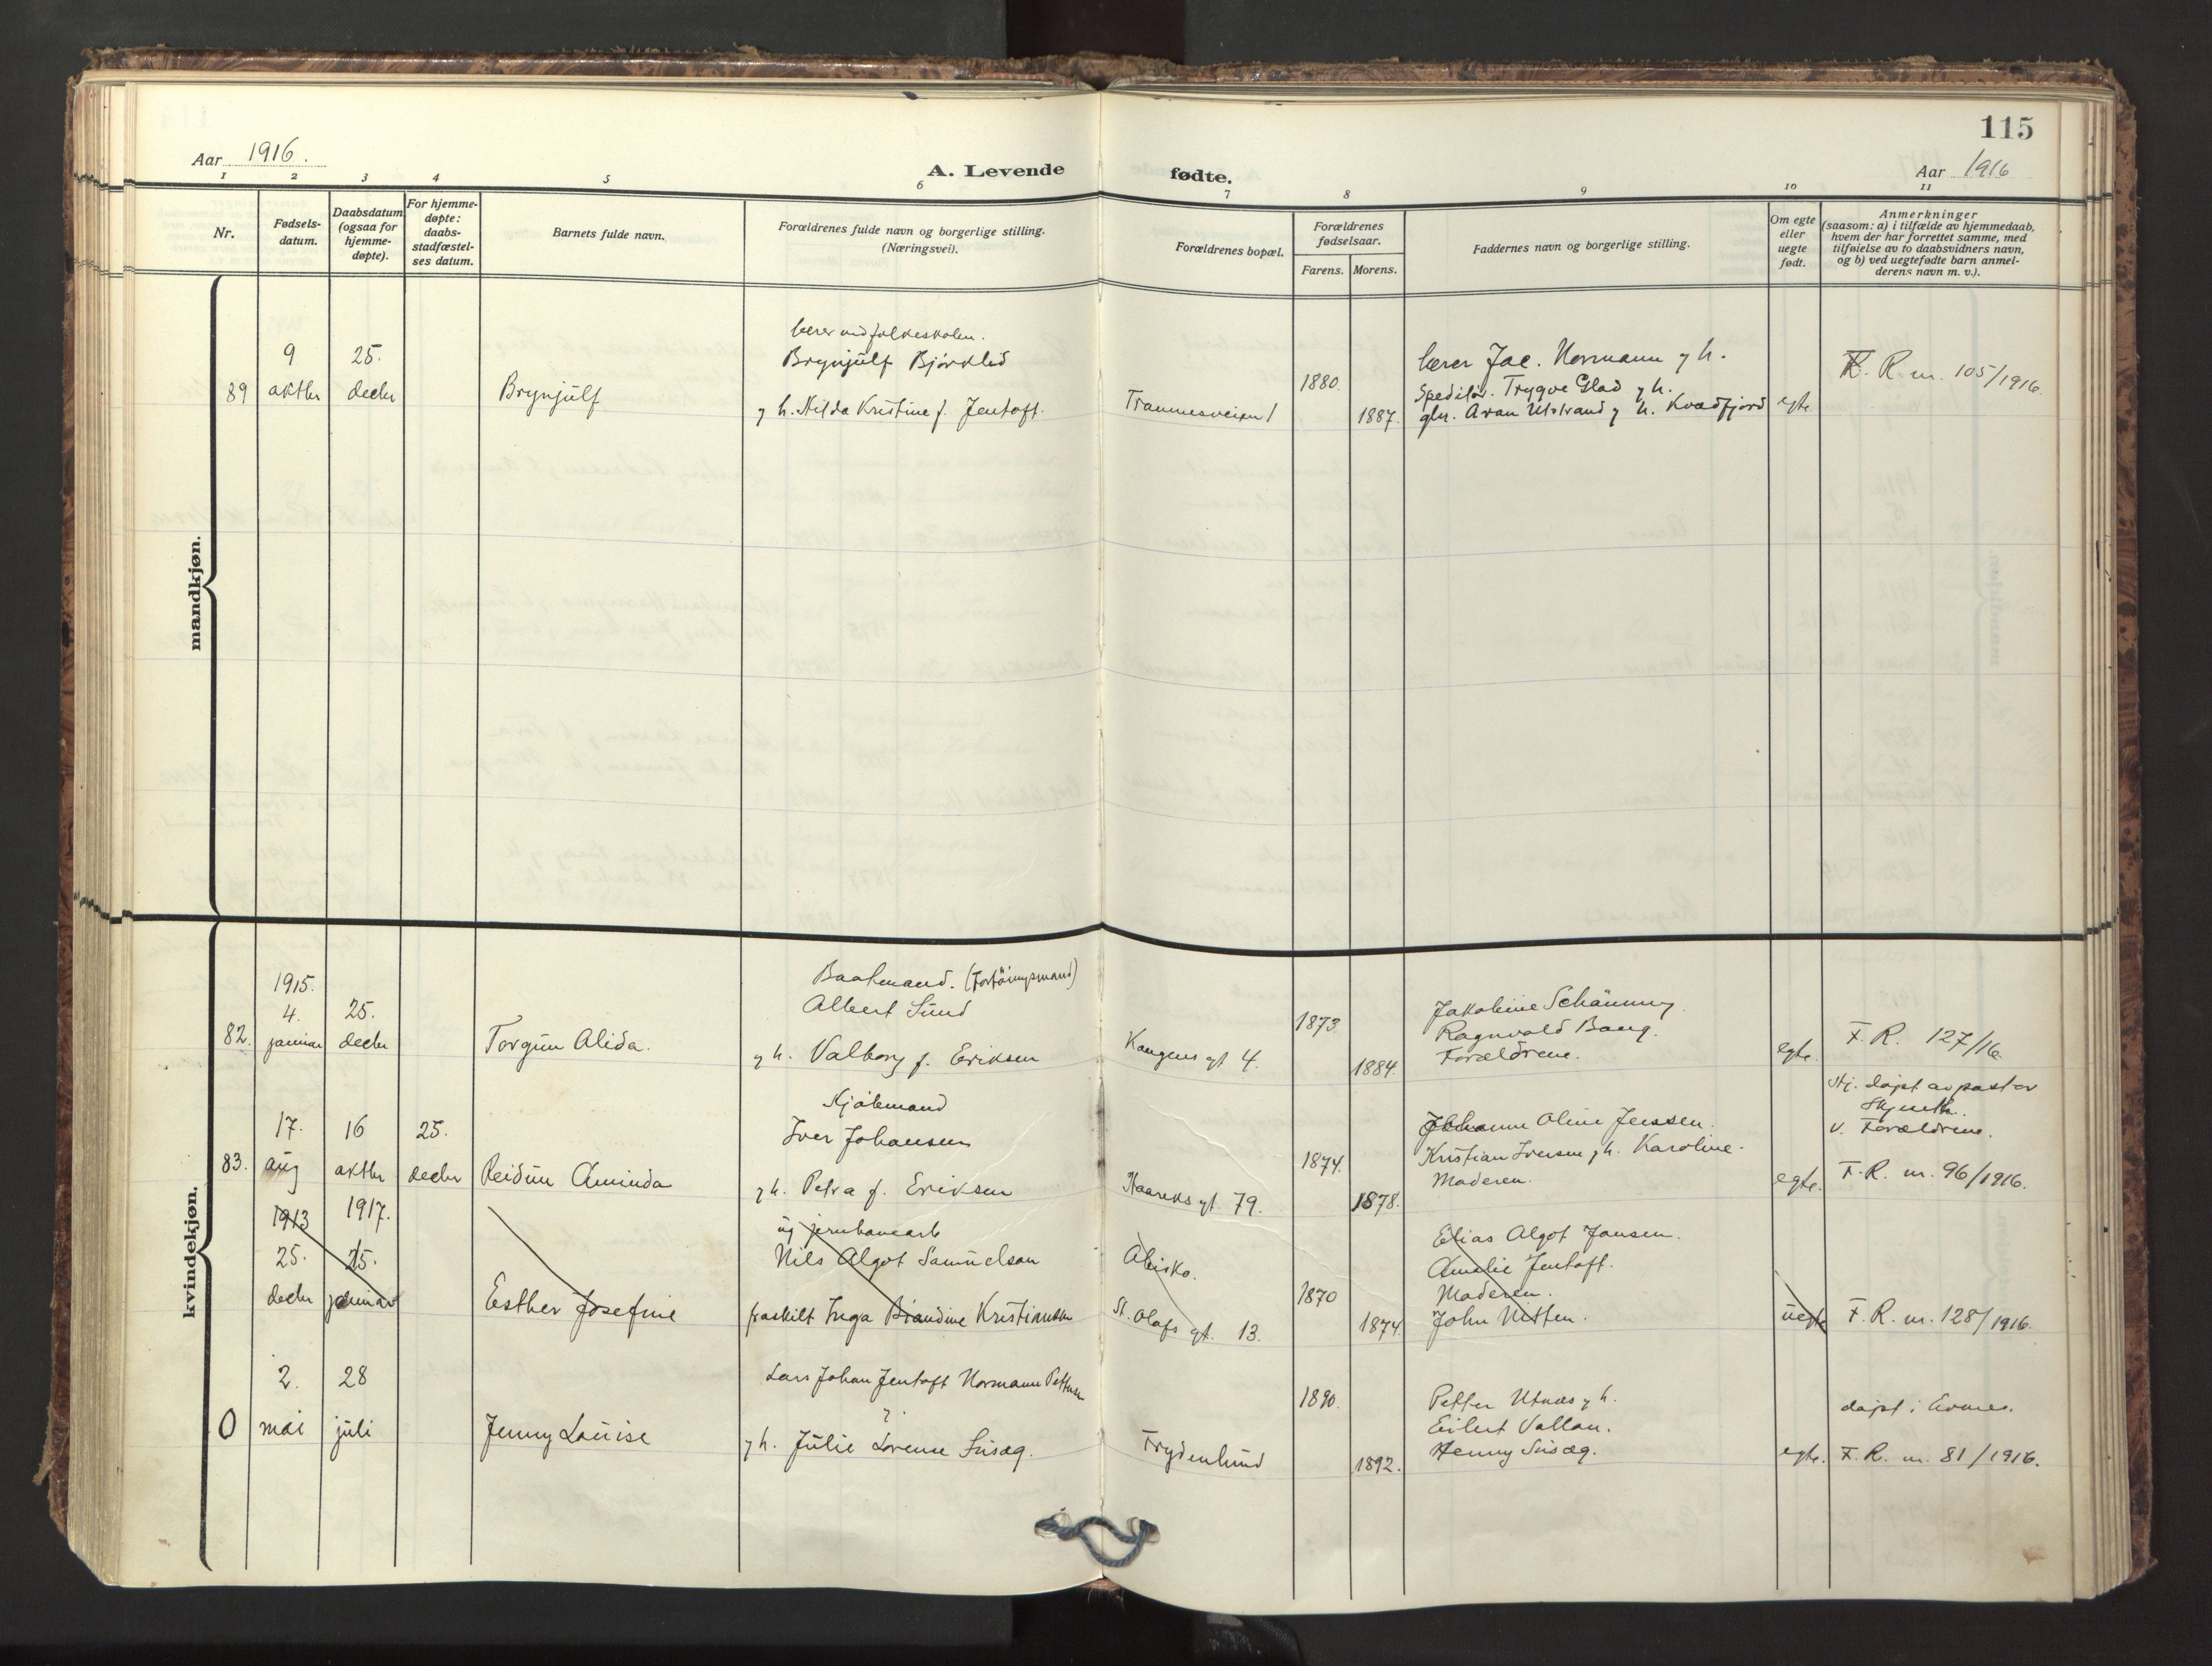 115
Aar 1916.
A. Levende fødte.
Aar 1916
1 2 3 4 5 6 7 8 9 10 11
Nr.
Fødsels-
datum.
Daabsdatum
(ogsaa for
hjemme-
døpte).
For hjemme-
døpte:
daabs-
stadfæstel-
ses datum.
Barnets fulde navn.
Forældrenes fulde navn og borgerlige stilling.
(Næringsvei).
Forældrenes bopæl.
Forældrenes
fødselsaar.
Farens. Morens.
Faddernes navn og borgerlige stilling.
Om egte
eller
uegte
født.
Anmerkninger
(saasom: a) i tilfælde av hjemmedaab,
hvem der har forrettet samme, med
tilføielse av to daabsvidners navn,
og b) ved uegtefødte barn anmel-
derens navn m. v.).
mandkjøn.
89
9
oktbr
25.
decbr
Brynjülf
lærer ved folkeskolen.
Brynjülf Bjørklid
g h. Hilda Kristine f. Jentoft.
1880.
1887.
lærer Jac. Normann g h.
Speditør. Trygve Glad g h.
Kvædfjord
egte
F. R nr. 105/1916.
kvindekjøn.
82.
1915.
4.
januar
25.
decbr
Torgün Alida.
Baatmand.
Albert Sünd
g h. Valborg f. Eriksen
Kongens gt 4.
1873.
1884.
Ragnvald Bang.
Forældrene.
egte.
F. R. 127/16.
83.
17.
aüg
16
oktbr
25.
decbr
Reidün Aminda
Iver Johansen
g h. Petra f. Eriksen
Haareks gt. 79.
1874.
1878.
Johanne Oline Jenssen.
Kristian Iversen g h. Karoline.
Moderen.
egte.
Hj. døpt av pastor
v. Forældrene.
F. R. nr. 96/1916.
1913
25.
decbr
1917.
25.
januar
Esther Josefine
üg jernbanearb
Nils Algot Samüelson
fraskilt Inga Kristiansen
Abisko.
St. Olafs gt. 13.
1870
1874.
Elias Algot Jansen.
Amalie Jentoft.
Moderen.
John
üegte
F. R. nr. 128/1916.
0
2.
mai
28
jüli
Jenny Loüise
Lars Johan Jentoft Normann Pettersen
g h. Jülie Lorense
Frydenlünd
1890.
1892.
Petter Utnæs g h.
Eilert
Henny
egte.
døpt i
F. R. nr. 81/1916.